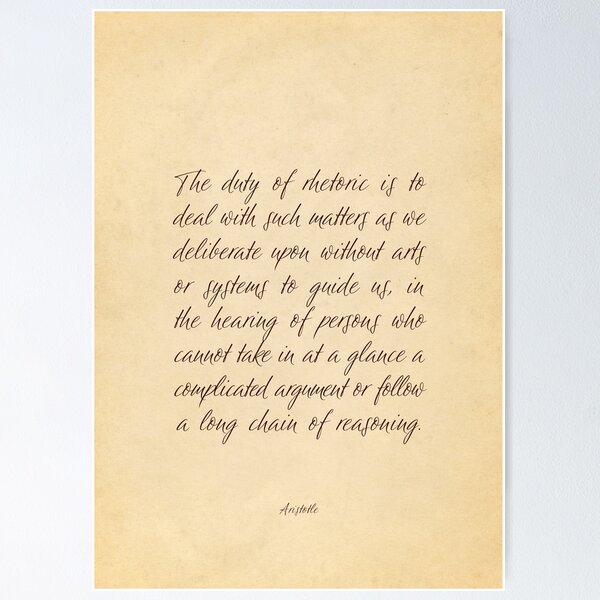 The duty of rhetoric is to
deal with such matters as we
deliberate upon without arts
or systems to guide us, in
the hearing of persons who
cannot take in at a glance a
complicated argument or follow
a long chain of reasoning.
Aristotle